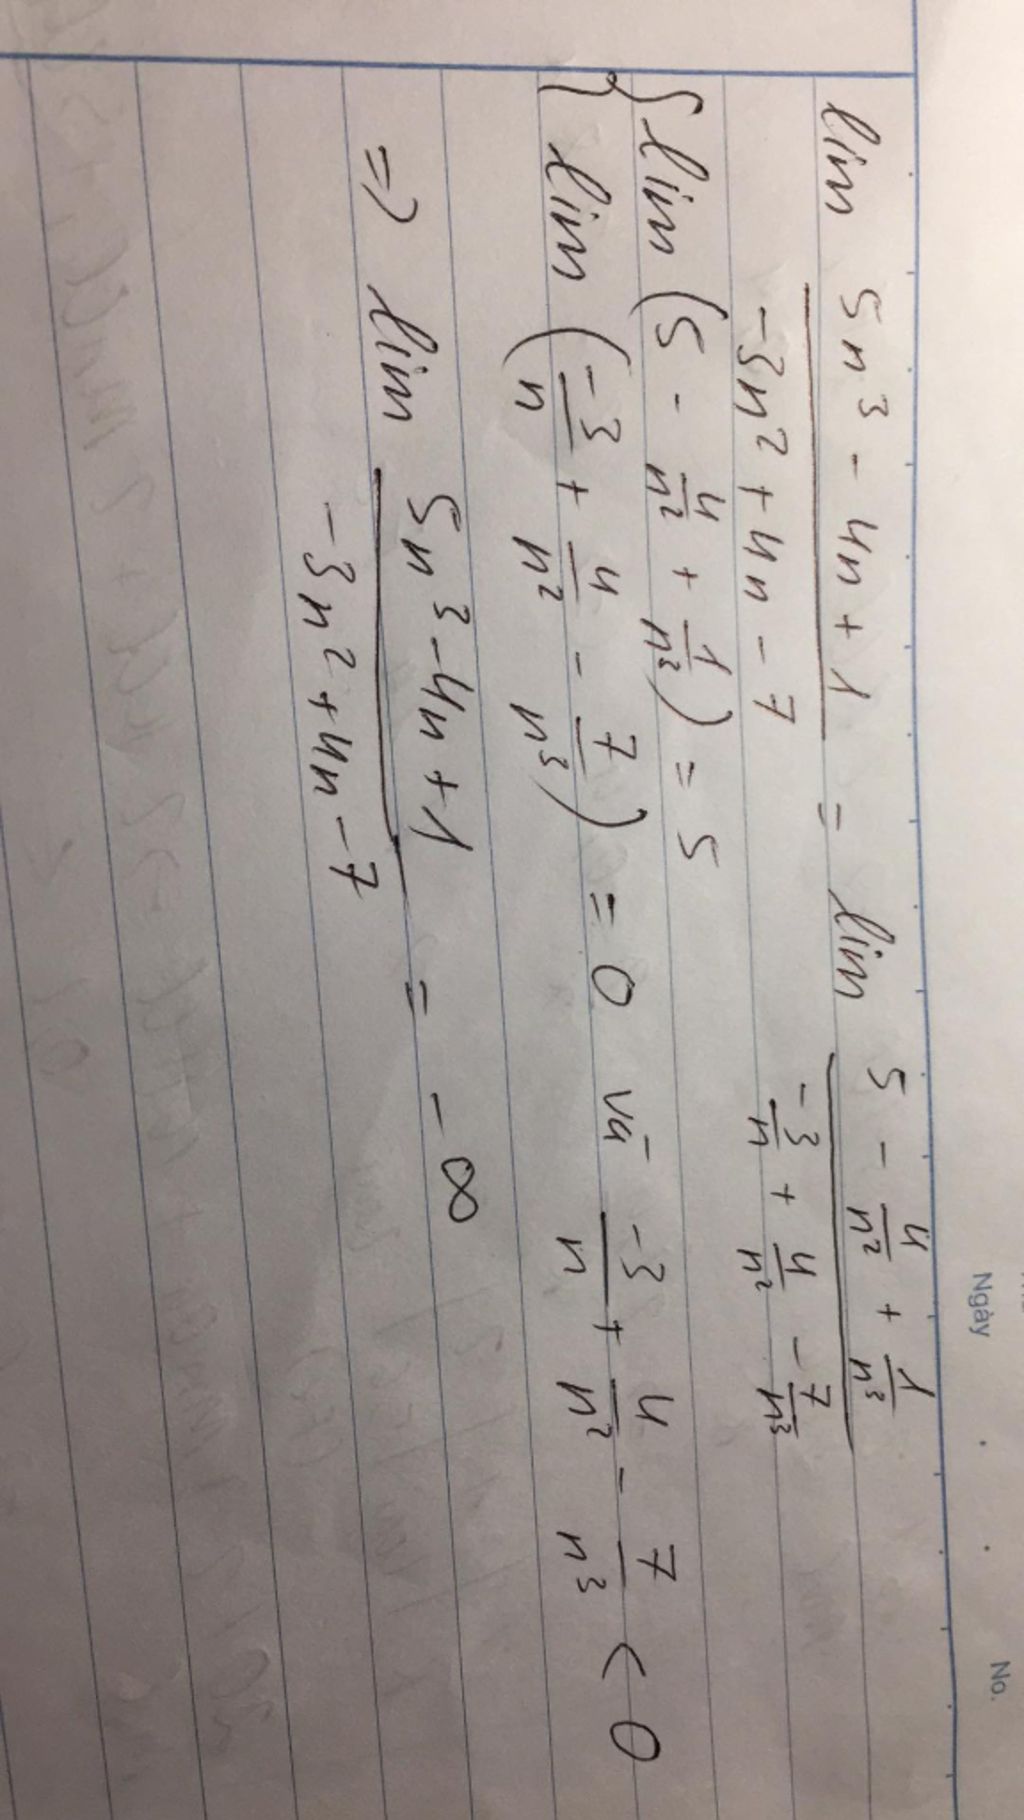 Ngày No.
lim (5n³ - 4n + 1)/(-3n² + 4n - 7) = lim (5 - 4/n² + 1/n³)/(-3/n + 4/n² - 7/n³)
{ lim (5 - 4/n² + 1/n³) = 5
{ lim (-3/n + 4/n² - 7/n³) = 0 và -3/n + 4/n² - 7/n³ < 0
=> lim (5n³ - 4n + 1)/(-3n² + 4n - 7) = -∞